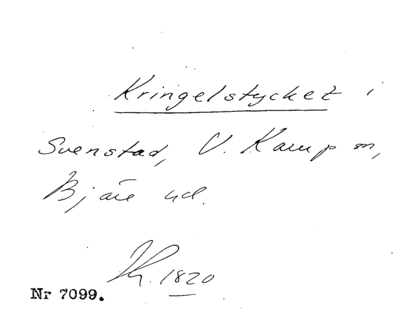 Kringelstycket i
Svenstad, V. Karup sn,
Bjäre hd.
1820
Nr 7099.